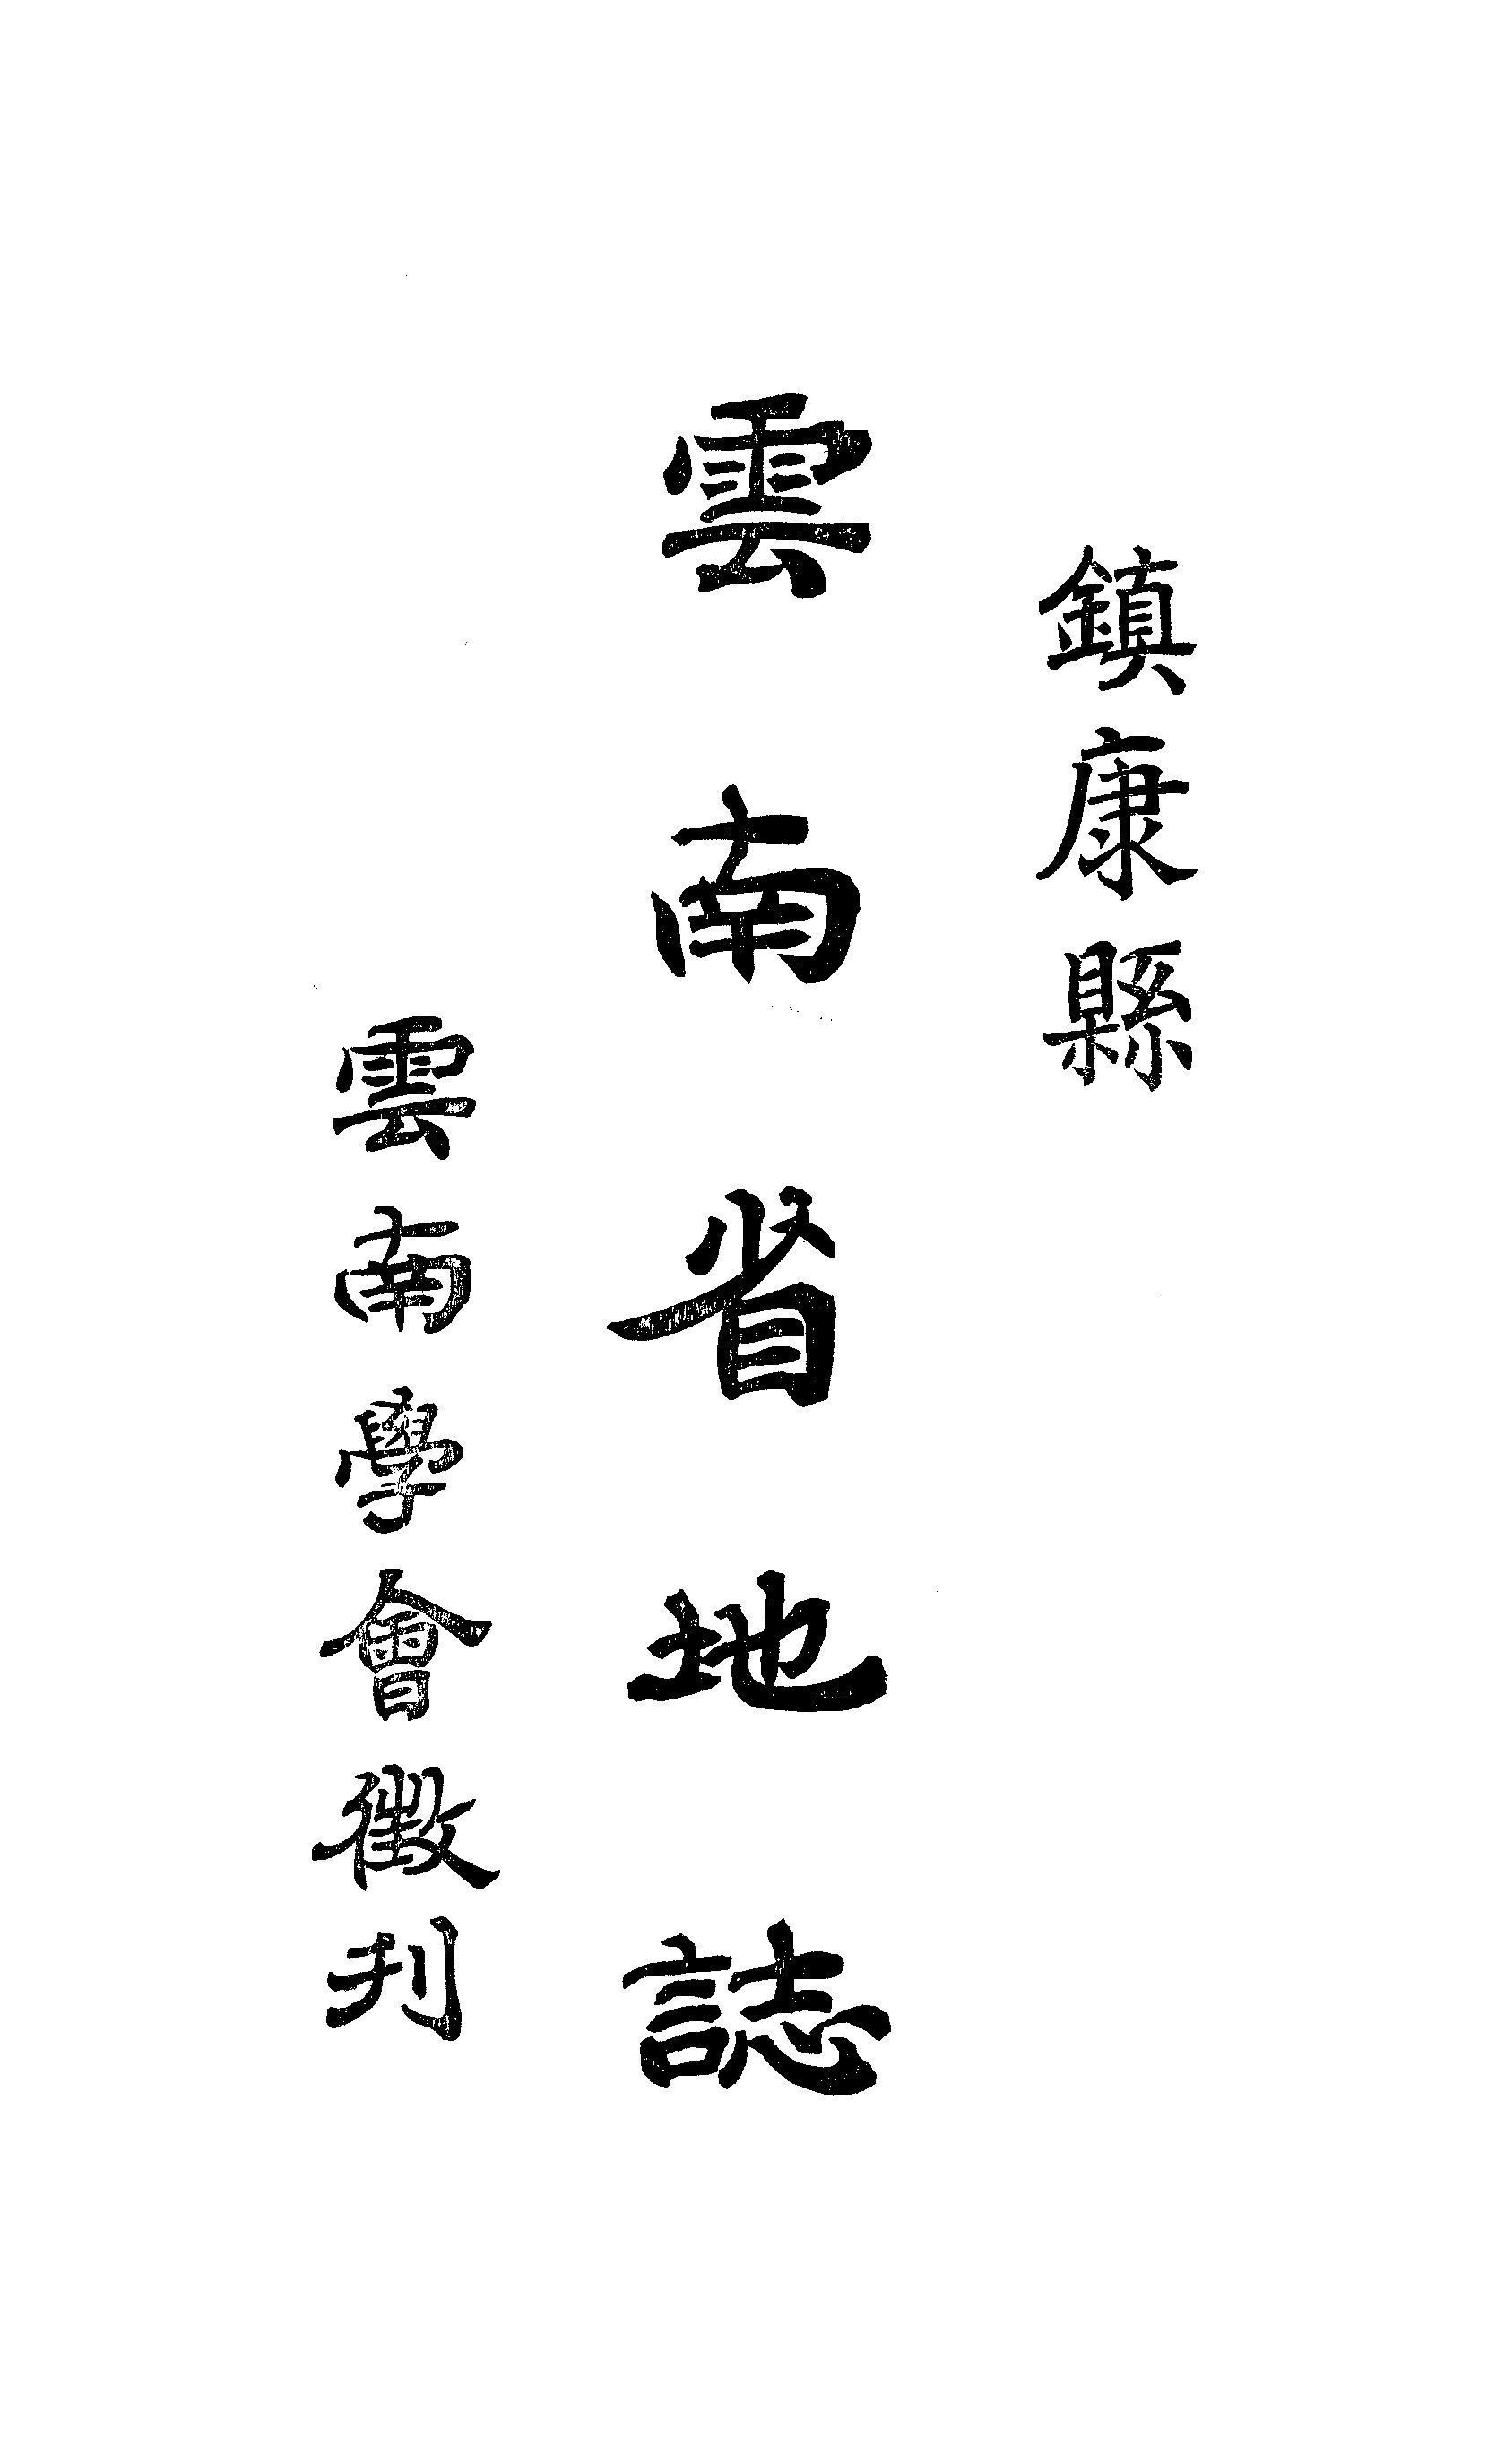 鎮康縣
雲南省地誌
雲南學會徵刋